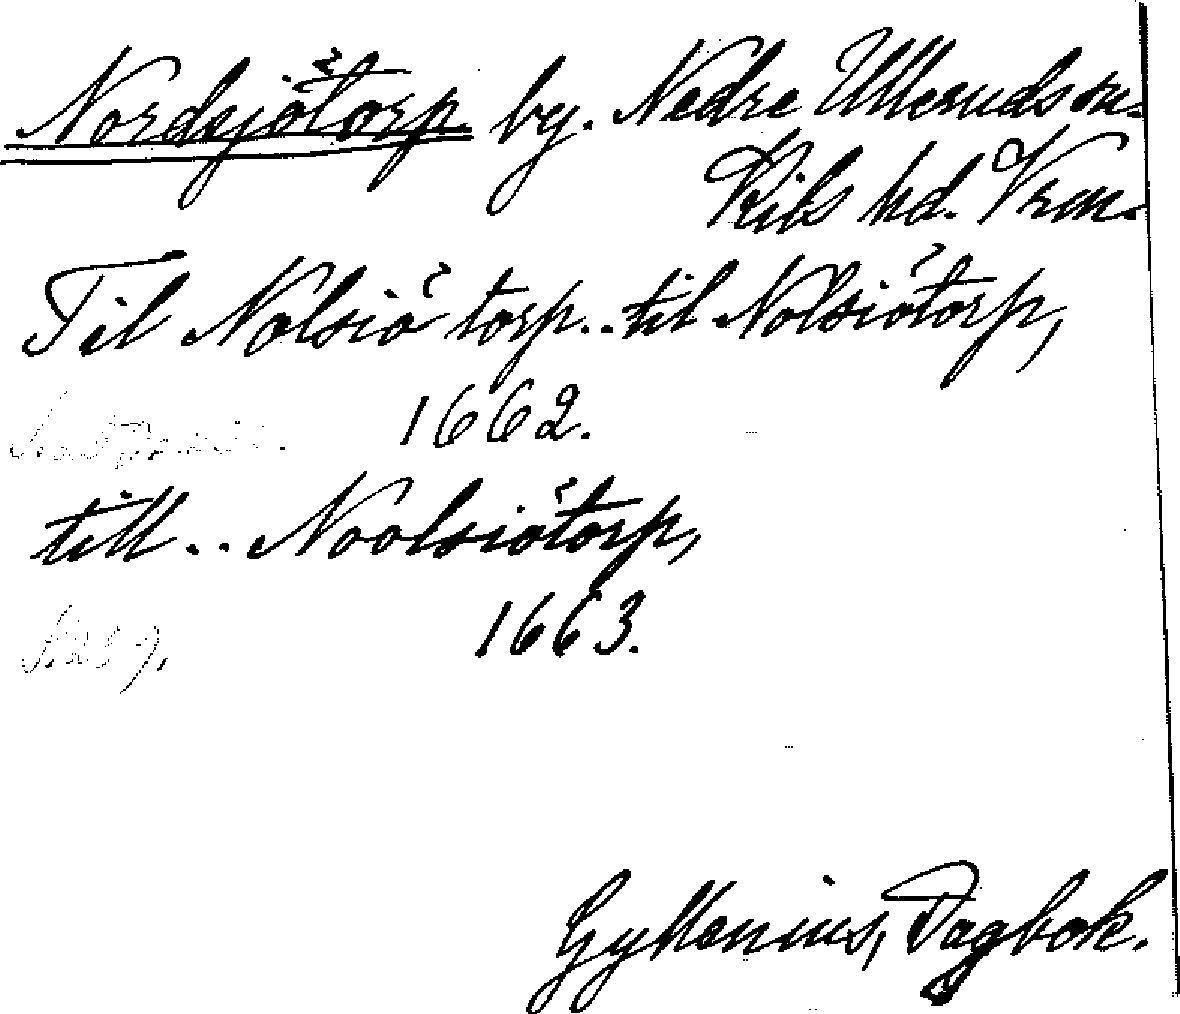 Nordsjötorp. by. Nedre Ulleruds sn.
Kils hd. Vrm.
Til Nolsiö torp.. til Nolsiötorp,
1662.
till.. Noolsiötorp,
1663.
Gyllenius, Dagbok.